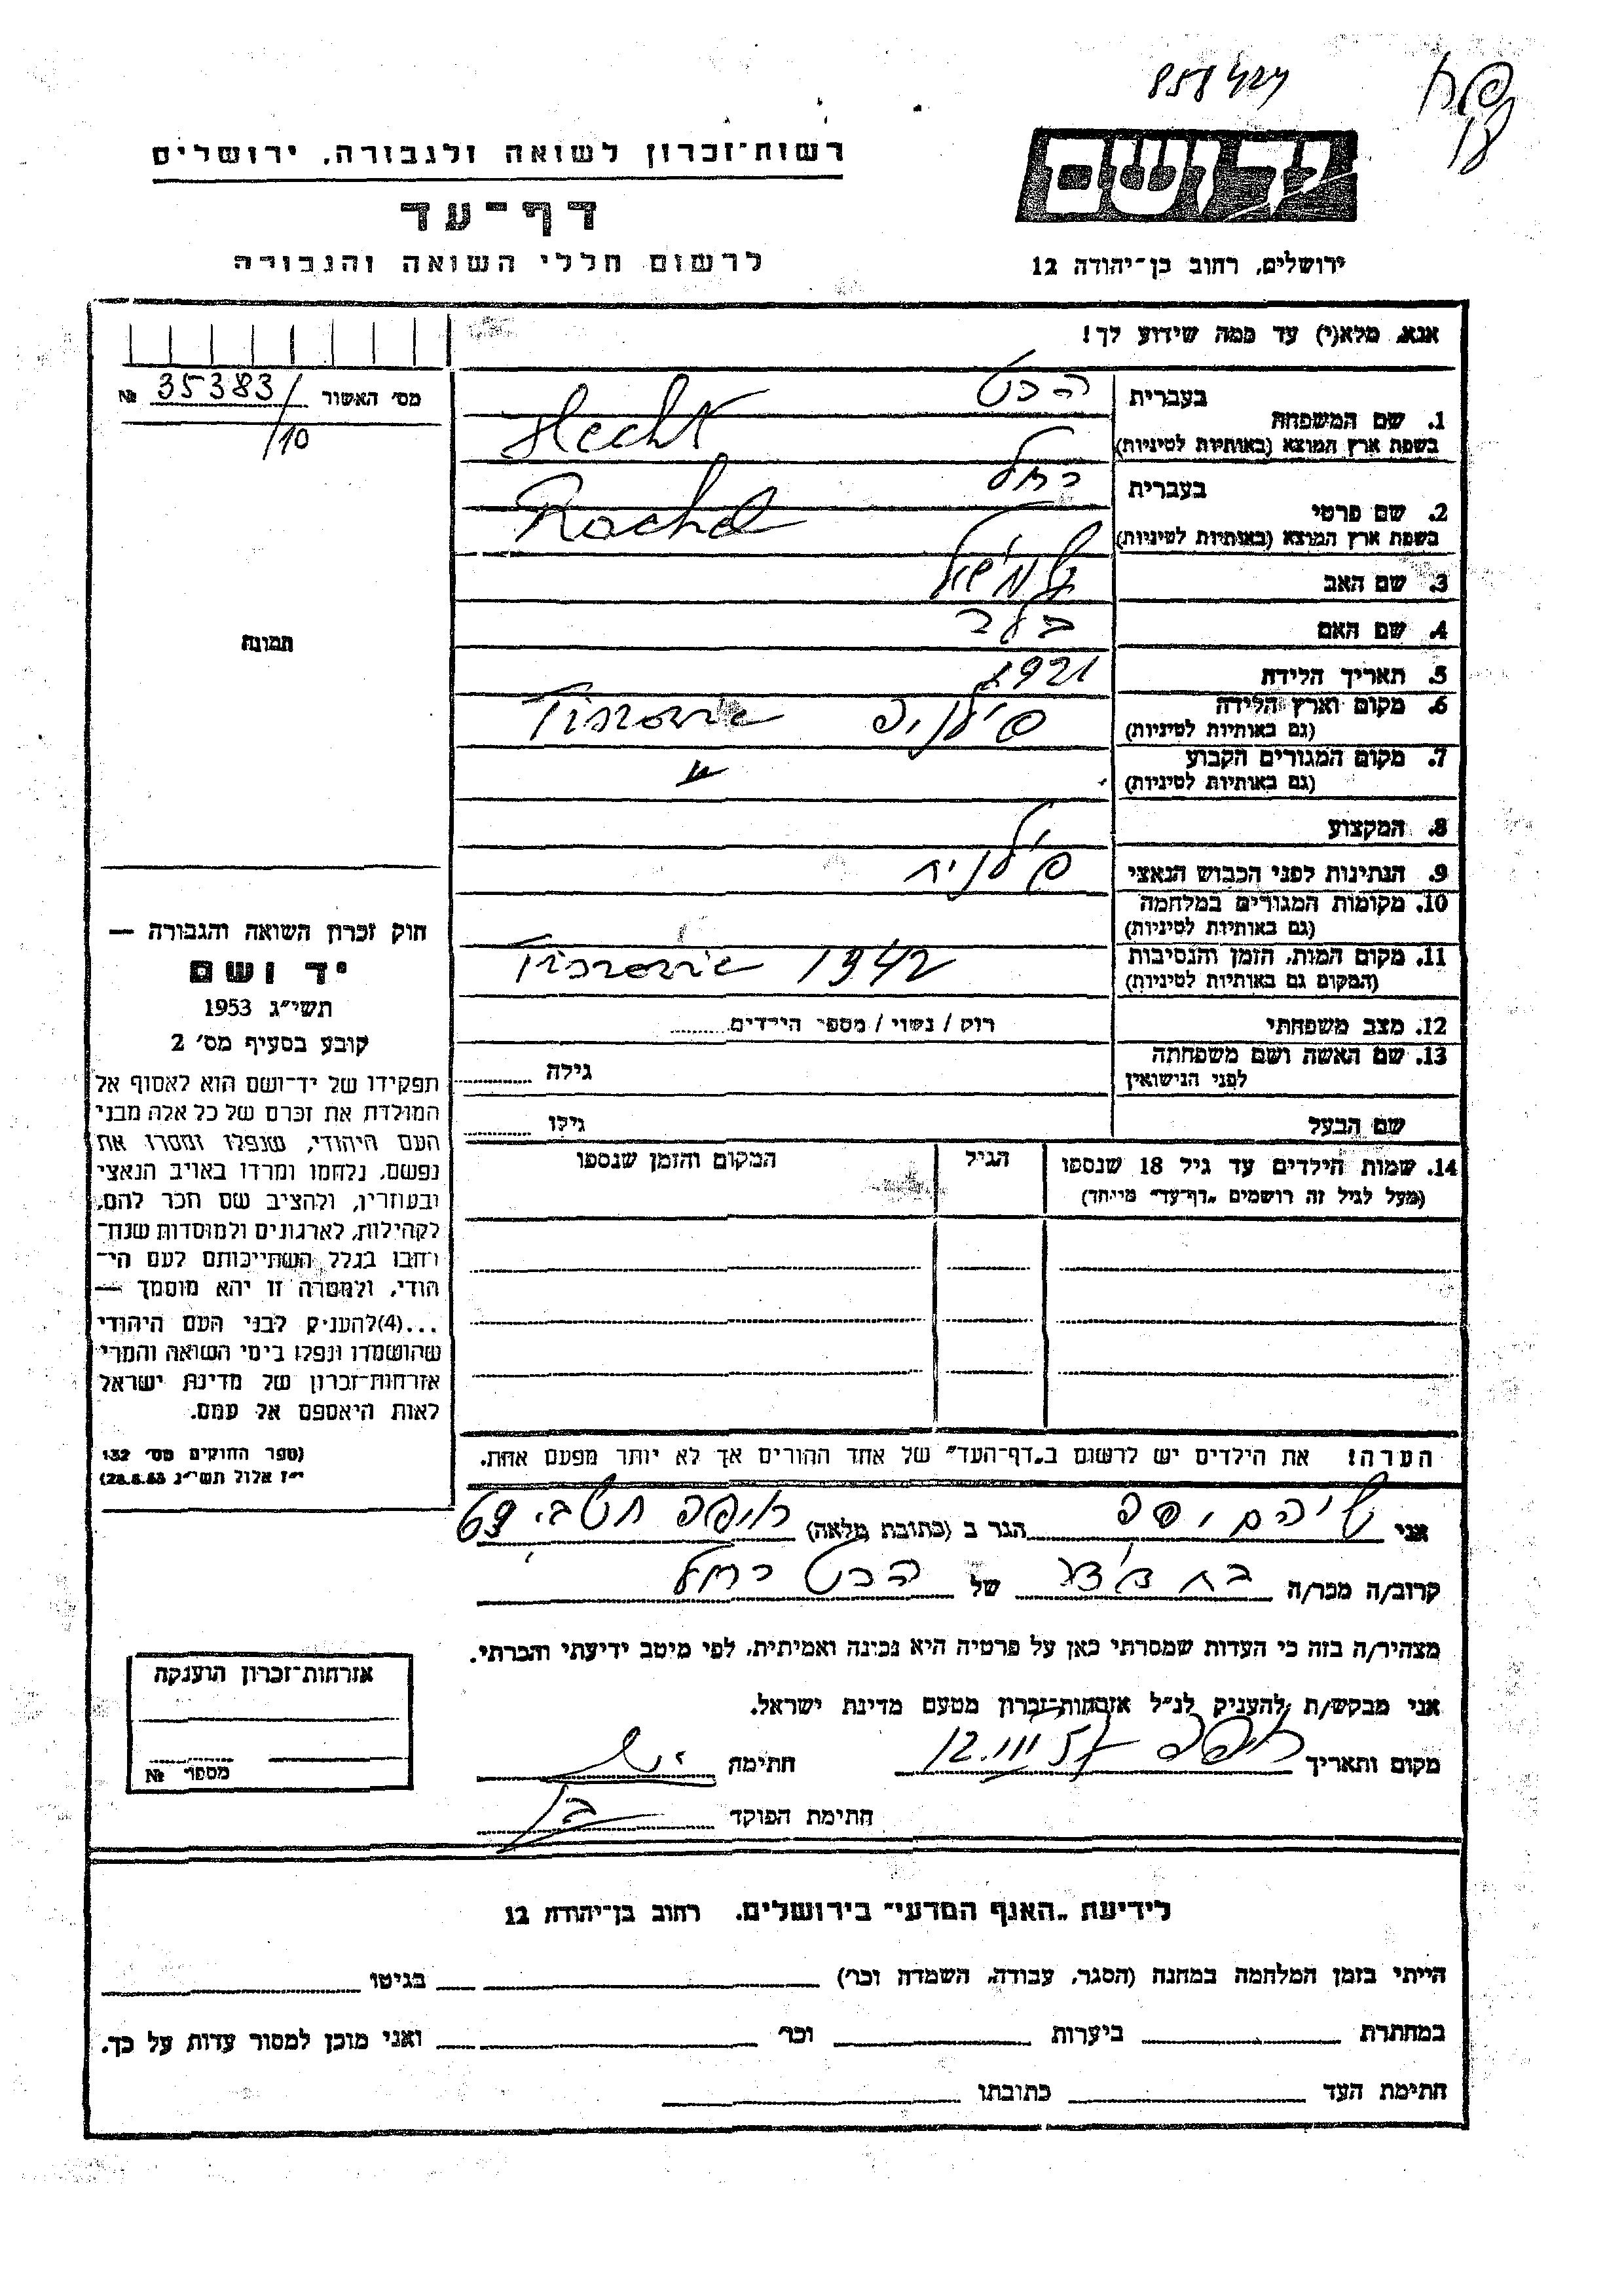 858424
רשות־זכרון לשואה ולגבורה, ירושלים
ידושם
דף־עד
ירושלים, רחוב בן־יהודה 12
לרשום חללי השואה והגבורה
אנא, מלא(י) עד כמה שידוע לך!
מס׳ האשור № 35383/
/10
1. שם המשפחה
בעברית הכט
בשפת ארץ המוצא (באותיות לטיניות) Hecht
2. שם פרטי
בעברית רחל
בשפת ארץ המוצא (באותיות לטיניות) Rachel
3. שם האב
4. שם האם
5. תאריך הלידה 1921
6. מקום וארץ הלידה
(גם באותיות לטיניות) פולניה
7. מקום המגורים הקבוע
(גם באותיות לטיניות) "
8. המקצוע
9. הנתינות לפני הכבוש הנאצי פולנית
10. מקומות המגורים במלחמה
(גם באותיות לטיניות)
11. מקום המות, הזמן והנסיבות
(המקום גם באותיות לטיניות) 1942
12. מצב משפחתי רווק / נשוי / מספר הילדים
13. שם האשה ושם משפחתה
לפני הנישואין גילה
שם הבעל גילו
14. שמות הילדים עד גיל 18 שנספו הגיל המקום והזמן שנספו
(מעל לגיל זה רושמים „דף־עד" מיוחד)
הערה: את הילדים יש לרשום ב„דף־העד" של אחד ההורים אך לא יותר מפעם אחת.
תמונה
חוק זכרון השואה והגבורה —
יד ושם
תשי״ג 1953
קובע בסעיף מס׳ 2
תפקידו של יד־ושם הוא לאסוף אל
המולדת את זכרם של כל אלה מבני
העם היהודי, שנפלו ומסרו את
נפשם, נלחמו ומרדו באויב הנאצי
ובעוזריו, ולהציב שם וזכר להם,
לקהילות, לארגונים ולמוסדות שנח־
רבו בגלל השתייכותם לעם הי־
הודי, ולמטרה זו יהא מוסמך —
...(4)להעניק לבני העם היהודי
שהושמדו ונפלו בימי השואה והמרי
אזרחות־זכרון של מדינת ישראל
לאות היאספם אל עמם.
(ספר החוקים מס׳ 132
י״ז אלול תשי״ג 28.8.53)
אני הגר ב (כתובת מלאה) חיפה 69
קרוב/ה מכר/ה של הכט רחל
מצהיר/ה בזה כי העדות שמסרתי כאן על פרטיה היא נכונה ואמיתית, לפי מיטב ידיעתי והכרתי.
אני מבקש/ת להעניק לנ״ל אזרחות־זכרון מטעם מדינת ישראל.
מקום ותאריך חיפה 12.III 57 חתימה
חתימת הפוקד
אזרחות־זכרון הוענקה
מספר №
לידיעת „האגף המדעי" בירושלים, רחוב בן־יהודה 12
הייתי בזמן המלחמה במחנה (הסגר, עבודה, השמדה וכר׳) בגיטו
במחתרת ביערות וכר׳ ואני מוכן למסור עדות על כך.
חתימת העד כתובתו